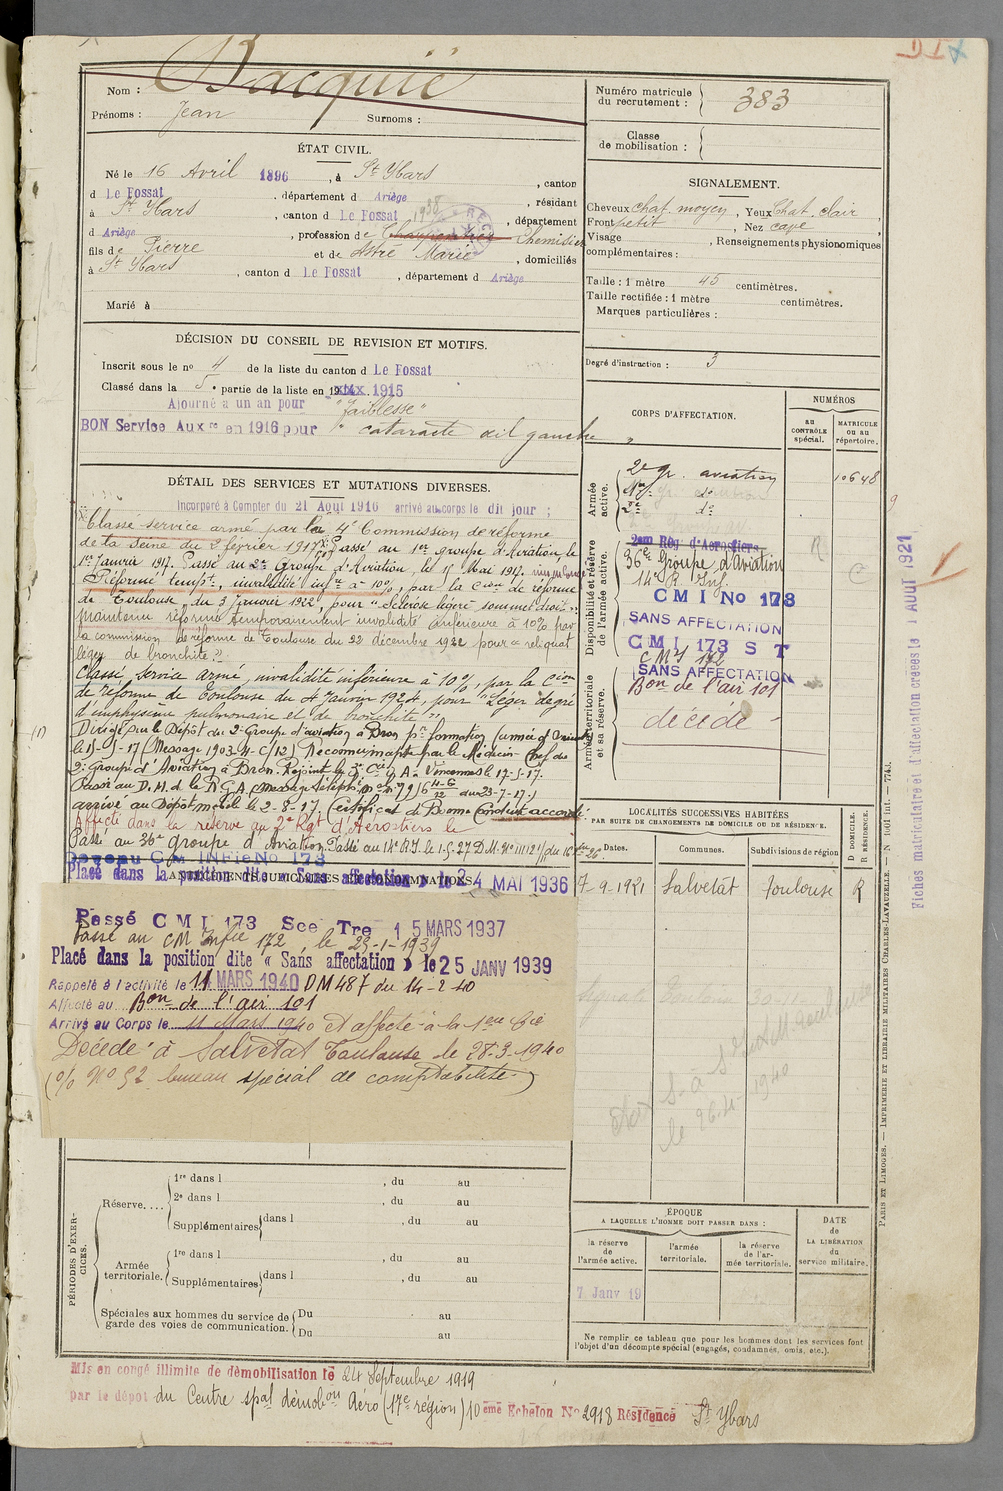 Nom : Bacquié
Prénoms : Jean Surnoms :
ÉTAT CIVIL.
Né le 16 Avril 1896, à St Ybars, canton
d Le Fossat, département d Ariège, résidant
à St Ybars, canton d Le Fossat, département
d Ariège, profession de Chemisier
fils de Pierre et de Astré Marie, domiciliés
à St Ybars, canton d Le Fossat, département d Ariège
Marié à
DÉCISION DU CONSEIL DE REVISION ET MOTIFS.
Inscrit sous le no 4 de la liste du canton d Le Fossat
Classé dans la 5e partie de la liste en 1915
Ajourné a un an pour "faiblesse"
BON Service Auxre en 1916 pour "cataracte œil gauche"
DÉTAIL DES SERVICES ET MUTATIONS DIVERSES.
Incorporé à Compter du 21 Aout 1916 arrivé au corps le dit jour ;
Classé service armé par la 4e Commission de réforme
de la Seine du 2 février 1917. Passé au 1er groupe d'Aviation le
1er Janvier 1917. Passé au 2e Groupe d'Aviation, le 15 Mai 1917.
Réformé tempre, invalidité infre à 10%, par la Cion de réforme
de Toulouse, du 3 Janvier 1922, pour "Sclérose légère sommet droit".
Maintenu réformé temporairement invalidité inférieure à 10% par
la commission de réforme de Toulouse du 22 décembre 1922 pour "reliquat
léger de bronchite"
Classé service armé, invalidité inférieure à 10%, par la Cion
de réforme de Toulouse du 4 Janvier 1924, pour "Léger degré
d'emphysème pulmonaire et de bronchite"
Dirigé par le Dépôt du 2e Groupe d'aviation à Bron pr formation
le 15-5-17 (Message 1903-4-C/12) Reconnu inapte par le Médecin Chef du
2e Groupe d'Aviation à Bron. Rejoint le G.A. Vincennes le 17-5-17.
Passé au D.M. de la R.G.A. du 23-7-17.
arrivé au Dépôt mobile le 2-8-17 (certificat de Bonne Conduite accordé
Affecté dans la réserve au 2e Rgt d'Aérostiers le
Passé au 36e groupe d'Aviation. Passé au 14e RI le 1-5-27 D.M. No 11121/ du 16
Devenu C M INFie No 173
Placé dans la position dite « Sans affectation » le 24 MAI 1936
ANTÉCÉDENTS JUDICIAIRES ET CONDAMNATIONS.
Passé C M I 173 Sce Tre 15 MARS 1937
Passé au CM Infie 172, le 25-1-1939
Placé dans la position dite « Sans affectation » le 25 JANV 1939
Rappelé à l'activité le 11 MARS 1940 DM 487 du 14-2-40
Affecté au Bon de l'air 101
Arrivé au Corps le 11 Mars 1940 et affecté à la 1ere Cie
Décédé à Salvetat Toulouse le 28-3-1940
(o/o No 52 bureau spécial de comptabilité)
PÉRIODES D'EXERCICES.
Réserve....
1re dans l , du au
2e dans l , du au
Supplémentaires dans l , du au
Armée territoriale.
1re dans l , du au
Supplémentaires dans l , du au
Spéciales aux hommes du service de garde des voies de communication.
Du au
Du au
Mis en congé illimité de démobilisation le 24 Septembre 1919
par le dépôt du Centre spal démobon Aéro (17e région) 10ème Echelon No 2918 Résidence St Ybars
Numéro matricule du recrutement : 383
Classe de mobilisation :
SIGNALEMENT.
Cheveux chat. moyen, Yeux Chat. clair,
Front petit, Nez cave
Visage , Renseignements physionomiques
complémentaires :
Taille : 1 mètre 45 centimètres.
Taille rectifiée : 1 mètre centimètres.
Marques particulières :
Degré d'instruction : 3
CORPS D'AFFECTATION.
NUMÉROS
au CONTRÔLE spécial.
MATRICULE ou au répertoire.
Armée active.
2e gr. aviation 10648
Disponibilité et réserve de l'armée active.
2em Rég d'Aérostiers
36e Groupe d'aviation R
14e R. Inf.
C M I No 173
SANS AFFECTATION
C M I 173 S T
CMI 172
SANS AFFECTATION
Armée territoriale et sa réserve.
Bon de l'air 101
décédé
LOCALITÉS SUCCESSIVES HABITÉES
PAR SUITE DE CHANGEMENTS DE DOMICILE OU DE RÉSIDENCE.
Dates. Communes. Subdivisions de région D DOMICILE. R RÉSIDENCE.
7-9-1921 Salvetat Toulouse R
le 26.4.1940
ÉPOQUE
A LAQUELLE L'HOMME DOIT PASSER DANS :
la réserve de l'armée active.
l'armée territoriale.
la réserve de l'armée territoriale.
DATE de LA LIBÉRATION du service militaire.
7 Janv 19
Ne remplir ce tableau que pour les hommes dont les services font
l'objet d'un décompte spécial (engagés, condamnés, omis, etc.).
PARIS ET LIMOGES. — IMPRIMERIE ET LIBRAIRIE MILITAIRES CHARLES-LAVAUZELLE. — N° 1001 int. — 774.
Fiches matriculaire et d'affectation créées le 1 AOUT 1921